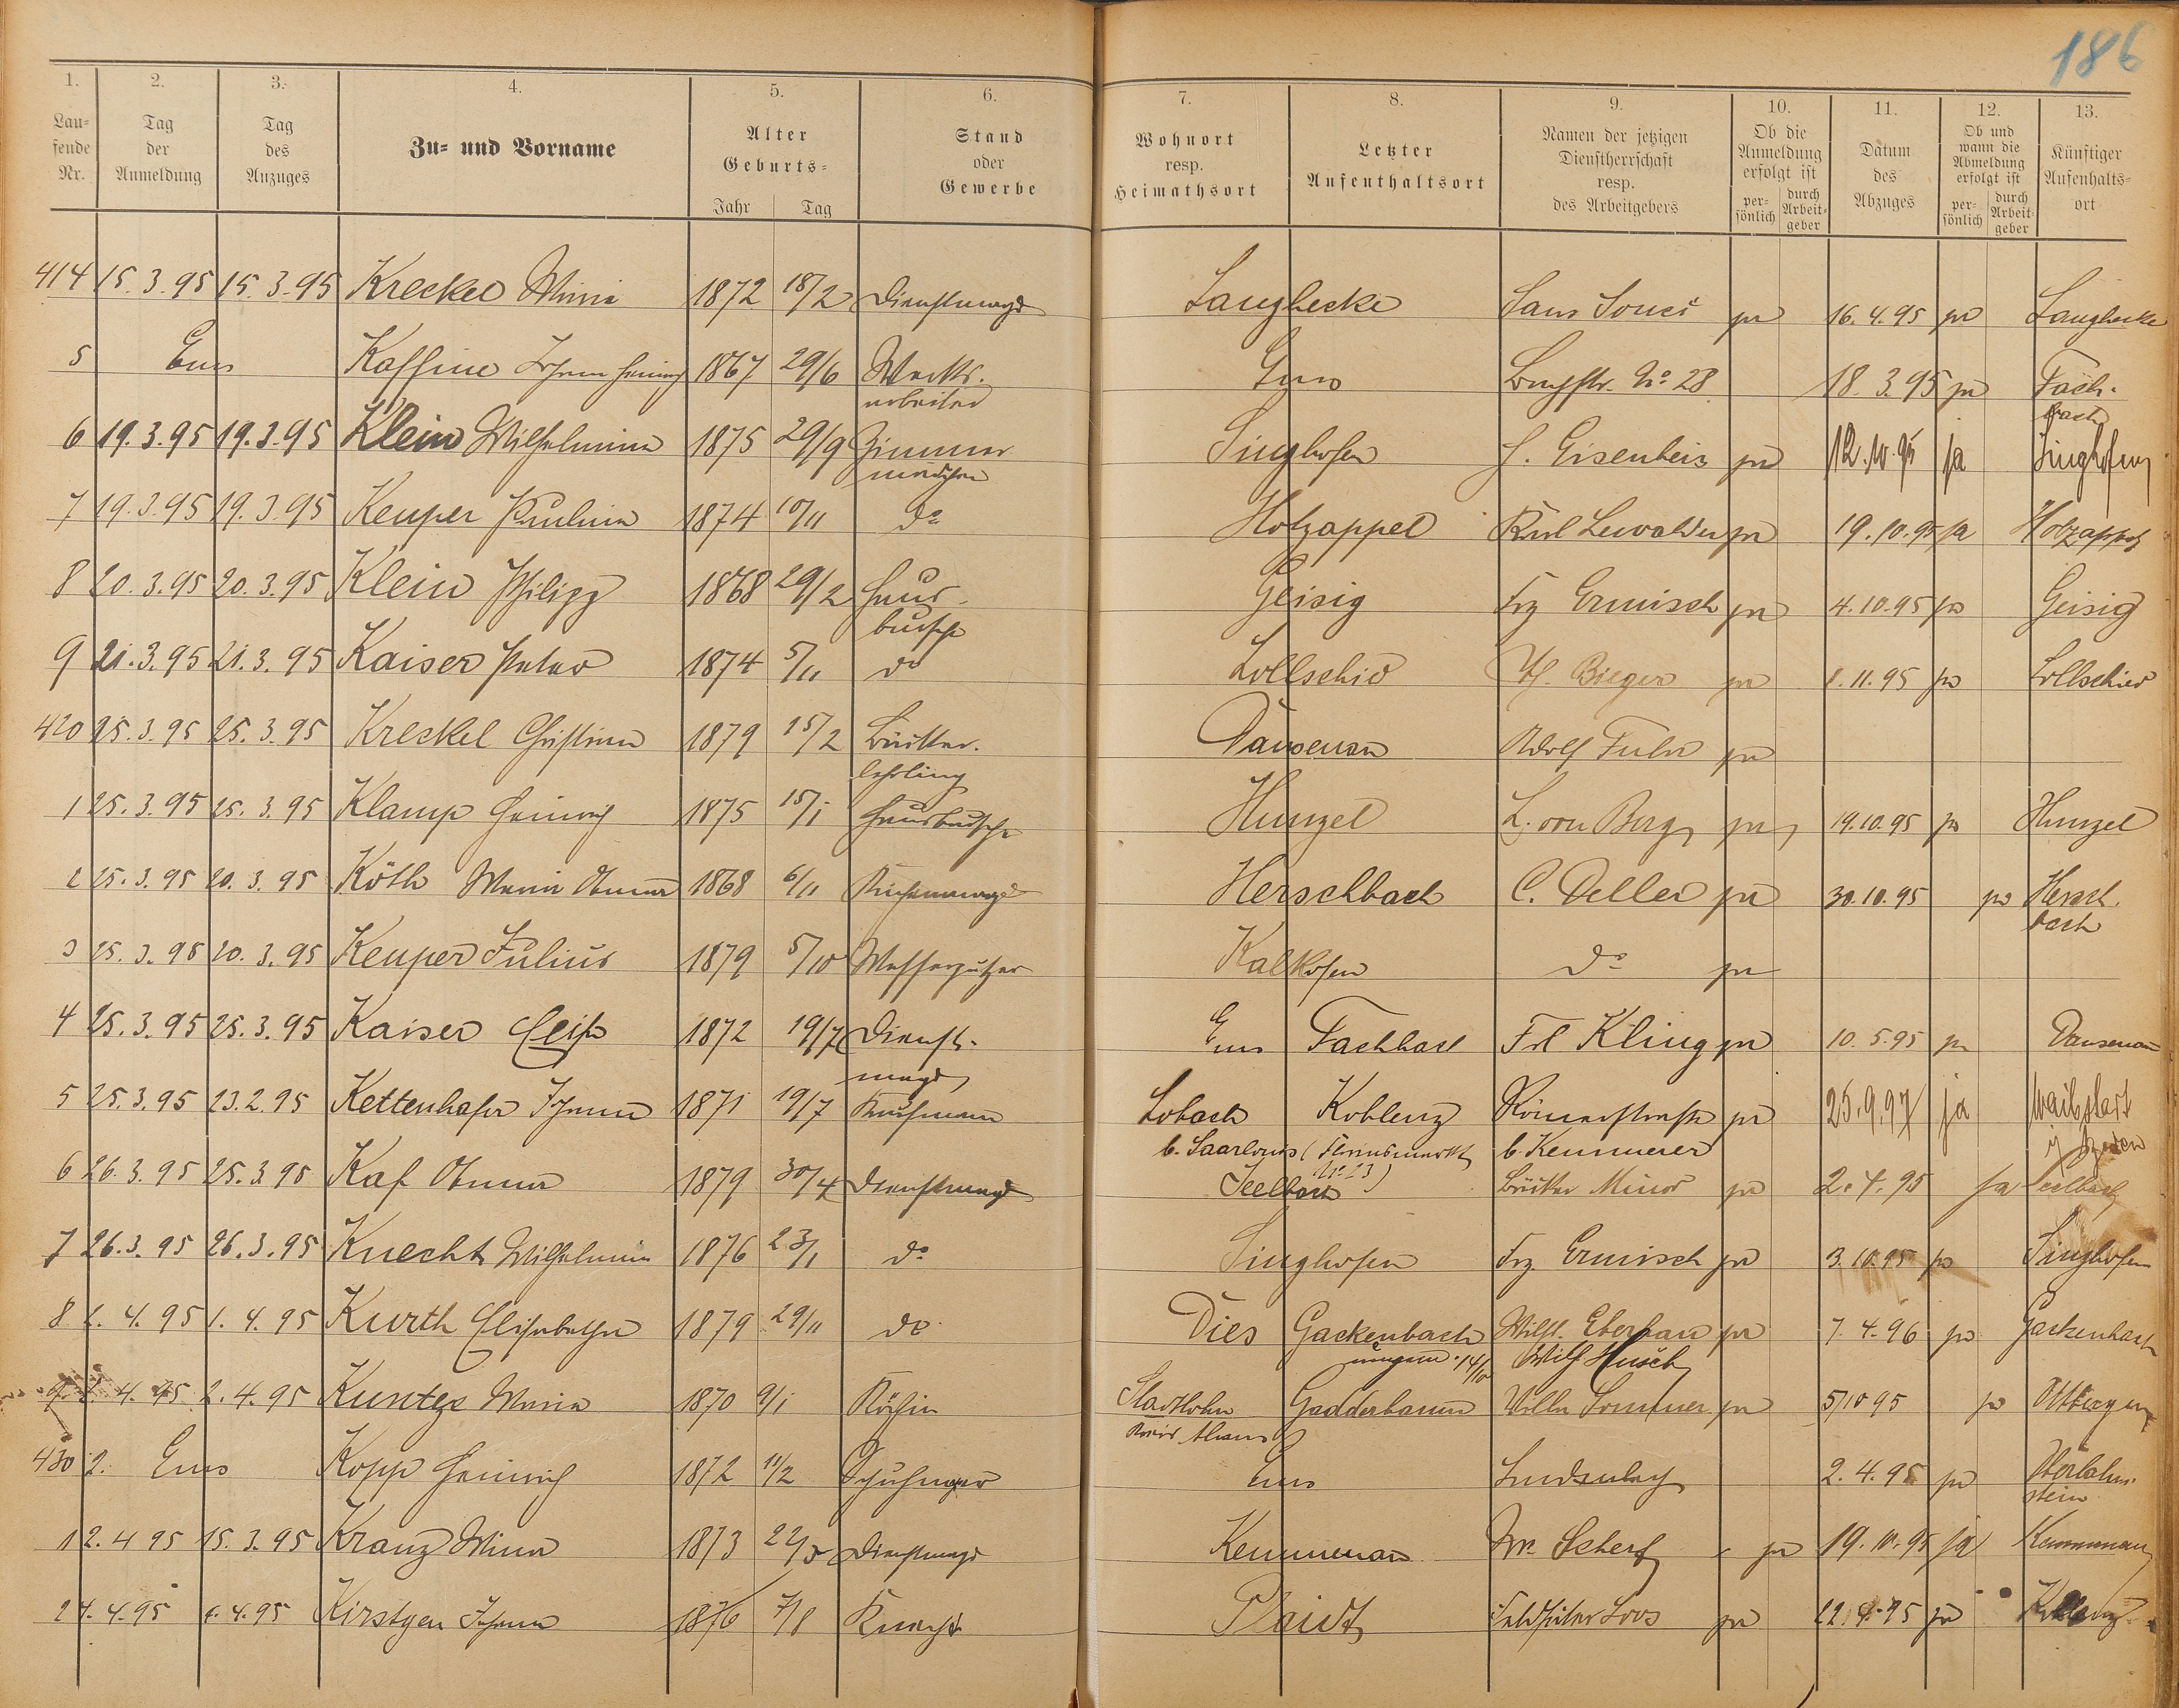 186
1. 2. 3. 4. 5. 6. 7. 8. 9. 10. 11. 12. 13.
Lau-
fende
Nr.
Tag
der
Anmeldung
Tag
des
Anzuges
Zu- und Vorname
Alter
Geburts-
Jahr Tag
Stand
oder
Gewerbe
Wohnort
resp.
Heimathsort
Letzter
Aufenthaltsort
Namen der jetzigen
Dienstherrschaft
resp.
des Arbeitgebers
Ob die
Anmeldung
erfolgt ist
per-
sönlich
durch
Arbeit-
geber
Datum
des
Abzuges
Ob und
wann die
Abmeldung
erfolgt ist
per-
sönlich
durch
Arbeit-
geber
Künftiger
Aufenhalts-
ort
414 15.3.95 15.3.95 Kreckel Minna 1872 18/2 Dienstmagd Langhecke Sans Souci ja 16.4.95 ja Langhecke
5 Ems Kaffine Johann Heinrich 1867 29/6 Werks- Ems No. 28 18.3.95 ja Fach-
arbeiter bach
6 19.3.95 19.3.95 Klein Wilhelmina 1875 29/9 Zimmer Singhofen H. Eisenbeis ja 12.10.95 ja Singhofen
mädchen
7 19.3.95 19.3.95 Keuper Paulina 1874 10/11 do Holzappel Karl Lewalder ja 19.10.95 ja Holzappel
8 20.3.95 20.3.95 Klein Philipp 1868 29/2 Haus- Geisig Frz Ermisch ja 4.10.95 ja Geisig
bursche
9 21.3.95 21.3.95 Kaiser Peter 1874 5/11 do Lollschied W. Bieger ja 1.11.95 ja Lollschied
420 25.3.95 25.3.95 Kreckel Christian 1879 15/2 Bäcker- Dausenau Adolf ja
lehrling
1 25.3.95 25.3.95 Klamp Heinrich 1875 15/1 Hausbursche Hunzel L. von Berg ja 19.10.95 ja Hunzel
2 25.3.95 20.3.95 Köth Maria Anna 1868 6/11 Küchenmagd Herschbach C. Deller ja 30.10.95 ja Hersch-
bach
3 25.3.95 20.3.95 Keuper Julius 1879 5/10 Messerputzer Kalkofen do ja
4 25.3.95 25.3.95 Kaiser Elise 1872 19/7 Dienst- Ems Fachbach Frl Kling ja 10.5.95 ja Dausenau
magd
5 25.3.95 23.2.95 Kettenhofer Johann 1871 19/7 Kaufmann Lobach Koblenz Römerstrasse ja 25.9.97 ja Waibstadt
b. Saarlouis (Florinsmarkt b. Kemmerer i/ Baden
No. 13)
6 26.3.95 25.3.95 Kaf Anna 1879 30/4 Dienstmagd Seelbach Bäcker Minor ja 2.4.95 ja Seelbach
7 26.3.95 26.3.95 Knecht Wilhelmina 1876 23/1 do Singhofen Frz. Ermisch ja 3.10.95 ja Singhofen
8 1.4.95 1.4.95 Kurth Elisabetha 1879 29/11 do Dies Gackenbach Wilh. ja 7.4.96 ja Gackenbach
14/10 Wilh Husch
9 2.4.95 2.4.95 Kuntze Maria 1870 9/1 Köchin Stadtlohn Gadderbaum Villa Sommer ja 5/10 95 ja Ottbergen
Kreis Ahaus
430 2. Ems Kopp Heinrich 1872 11/2 Ems 2.4.95 ja Oberlahn-
stein
1 2.4 95 15.3.95 Kranz Mina 1873 Dienstmagd Kemmenau Scherf ja 19.10.95 ja Kemmenau
2 4.4.95 4.4.95 Kirstgen Johann 1876 7/8 Knecht Plaidt Feldhüter Loos ja ja Koblenz